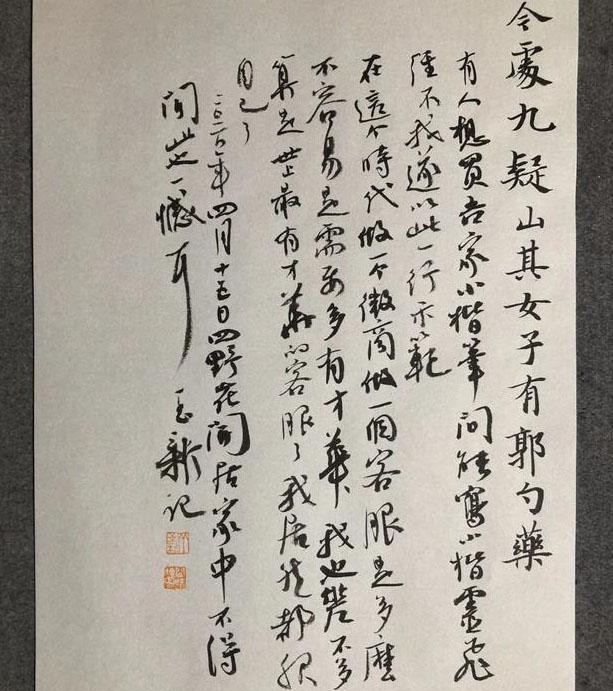 令處九疑山其女子有郭勺藥
有人想買吾家小楷筆問能寫小楷靈飛
經不我遂以此一行示範
在這个時代做一个微商做一個客服是多麼
不容易是需要多有才華我也差不多
算是世上最有才華的客服了我居然都服
自己了
二〇二〇年四月十五日四野花開居家中不得
此一憾耳 新記